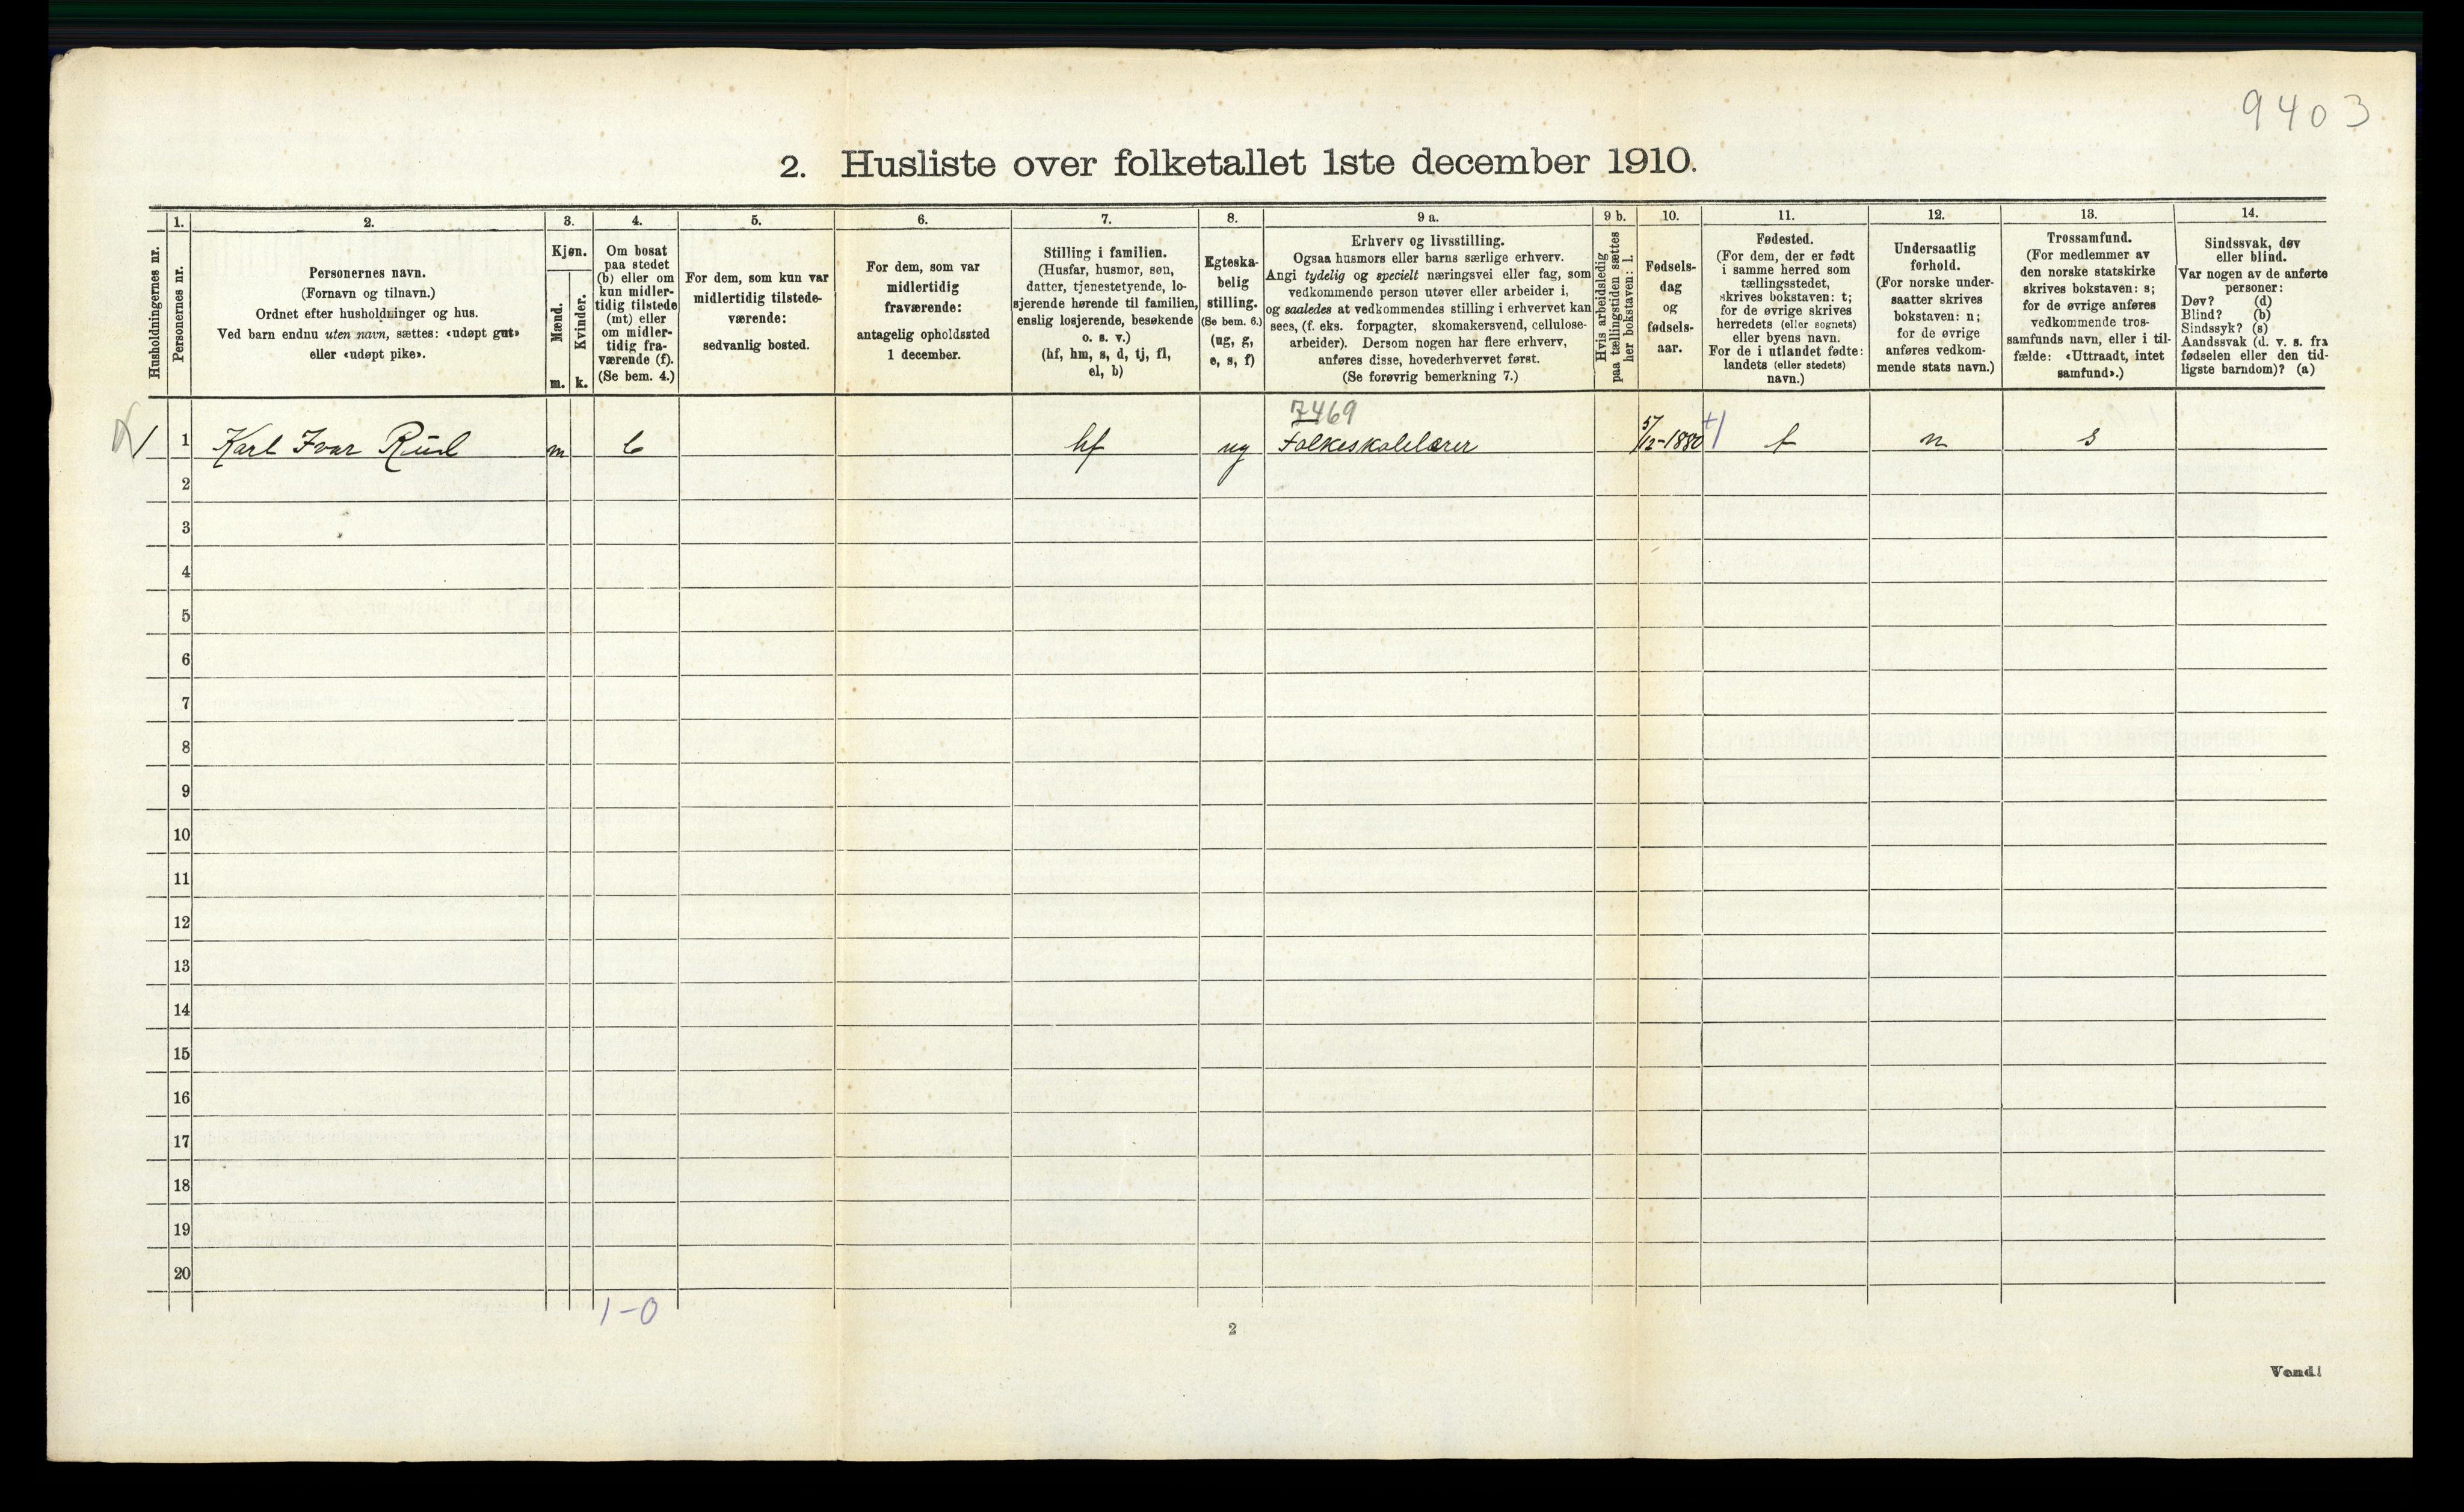 9403
2. Husliste over folketallet 1ste december 1910.
Husholdningernes nr.
1.
Personernes nr.
2.
Personernes navn.
(Fornavn og tilnavn.)
Ordnet efter husholdninger og hus.
Ved barn endnu uten navn, sættes: «udøpt gut»
eller «udøpt pike».
3.
Kjøn.
Mænd.
Kvinder.
m. k.
4.
Om bosat
paa stedet
(b) eller om
kun midler-
tidig tilstede
(mt) eller
om midler-
tidig fra-
værende (f).
(Se bem. 4.)
5.
For dem, som kun var
midlertidig tilstede-
værende:
sedvanlig bosted.
6.
For dem, som var
midlertidig
fraværende:
antagelig opholdssted
1 december.
7.
Stilling i familien.
(Husfar, husmor, søn,
datter, tjenestetyende, lo-
sjerende hørende til familien,
enslig losjerende, besøkende
o. s. v.)
(hf, hm, s, d, tj, fl,
el, b)
8.
Egteska-
belig
stilling.
(Se bem. 6.)
(ug, g,
e, s, f)
9 a.
Erhverv og livsstilling.
Ogsaa husmors eller barns særlige erhverv.
Angi tydelig og specielt næringsvei eller fag, som
vedkommende person utøver eller arbeider i,
og saaledes at vedkommendes stilling i erhvervet kan
sees, (f. eks. forpagter, skomakersvend, cellulose-
arbeider). Dersom nogen har flere erhverv,
anføres disse, hovederhvervet først.
(Se forøvrig bemerkning 7.)
9 b.
Hvis arbeidsledig
paa tællingstiden sættes
her bokstaven: l.
10.
Fødsels-
dag
og
fødsels-
aar.
11.
Fødested.
(For dem, der er født
i samme herred som
tællingsstedet,
skrives bokstaven: t;
for de øvrige skrives
herredets (eller sognets)
eller byens navn.
For de i utlandet fødte:
landets (eller stedets)
navn.)
12.
Undersaatlig
forhold.
(For norske under-
saatter skrives
bokstaven: n;
for de øvrige
anføres vedkom-
mende stats navn.)
13.
Trossamfund.
(For medlemmer av
den norske statskirke
skrives bokstaven: s;
for de øvrige anføres
vedkommende tros-
samfunds navn, eller i til-
fælde: «Uttraadt, intet
samfund».)
14.
Sindssvak, døv
eller blind.
Var nogen av de anførte
personer:
Døv? (d)
Blind? (b)
Sindssyk? (s)
Aandssvak (d. v. s. fra
fødselen eller den tid-
ligste barndom)? (a)
7469
1 1 Karl Ivar Rud m b hf ug Folkeskolelærer 5/12-1880 t n s
2
3
4
5
6
7
8
9
10
11
12
13
14
15
16
17
18
19
20
1-0
2
Vend!